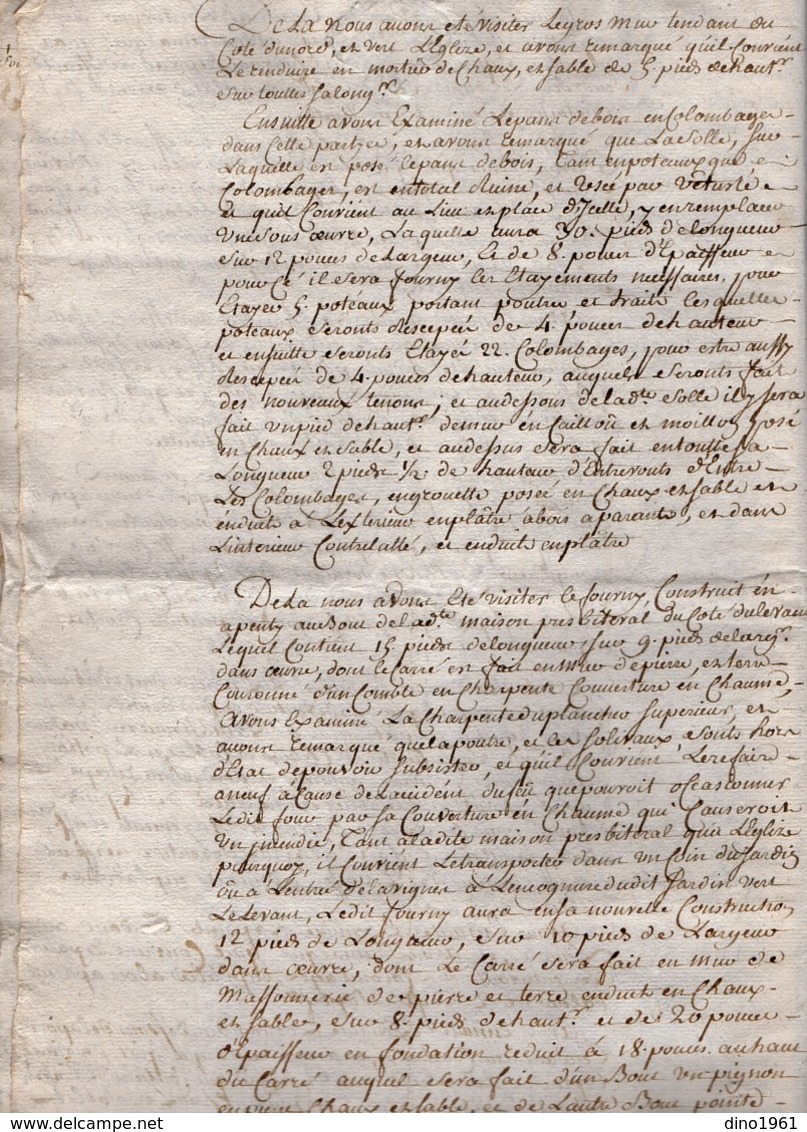 De La Nous avons eté visiter Le gros Mur tendant du
Coté du nord, et vert L'Eglize, et avons remarqué qu'il Convient
Le renduire en mortier de Chaux, et sable de 5. pieds de haut.r
sur touttes sa long.r
Ensuitte avons Examiné Le pans de bois en Colombages
dans Cette partye, et avons remarqué que La solle, sur
Laquelle est posé le pans de bois, Tant en poteaux que
Colombages, est en total Ruine, et
et qu'il Convient au Lieu et place d'Jcelle, y en remplacer
Une sous œuvre, Laquelle aura 30. pieds de longueur
sur 12 pouces de Largeur, Et de 8. pouces d'Epaisseur
pour Cé il sera fourny les Etayements nessaires, pour
Etayer 5. potéaux portant poutre et traité lesquelles
potéaux seronts Rescepéé de 4. pouces de hauteur
et ensuitte seronts Etayéé 22. Colombages, pour estre aussy
Rescepéé de 4. pouces de hauteur, auquels seronts fait
des nouveaux tenons; et au dessous de lad.te solle il y sera
fait un pied de haut.r de mur en Caillou et moillon posé
en Chaux et sable, et au dessus sera fait en toutte sa
Longueur 2 pieds 1/2. de hauteur d'Entrevouts d'Entre
Les Colombages, en grouette posée en Chaux et sable et
énduite à L'exterieur en plâtre à bois aparante, et dans
L'interieur Contrelatté, et enduit en plâtre
De La nous avons Eté visiter le fourny, Construit én
apenty au Bout de lad.te maison presbiteral du Coté du levant
Lequel Contient 15. pieds de longueur sur 9. pieds de larg.r
dans œuvre, dont le Carré est fait en mur de piérre, et terre
Couronné d'un Comble en Charpente Couverture en Chaume,
Avons Examiné La Charpente du plancher superieur, et
avons remarqué que la poutre, et les soliveaux sonts hors
d'Etat de pouvoir subsister, et qu'il Convient Le refaire
a neuf à Cause de L'accident du feü que pouroit ocasionner
Ledit four par sa Couverture en Chaume qui Causeroit
Un jncendie, Tant a ladite maison presbiteral qu'a L'Eglize
pourquoy, il Convient Le transporter dans un Coin du Jardin
où à L'entré de la vignes à L'encognure dudit Jardin vert
Le Levant, Ledit fourny aura en sa nouvelle Construction
12 pieds de Longueur, sur 10 pieds de Largeur
dans œuvre, dont Le Carré sera fait en mur de
Massonnerie de pierre et terre enduit en Chaux
et sable, sur 8. pieds de haut.r et de 20 pouces
d'Epaisseur en fondation reduit à 18. pouces au haut
du Carré auquel sera fait d'un Bout un pignon
en pierre Chaux et sable, et de L'autre Bout pointe
dino1961